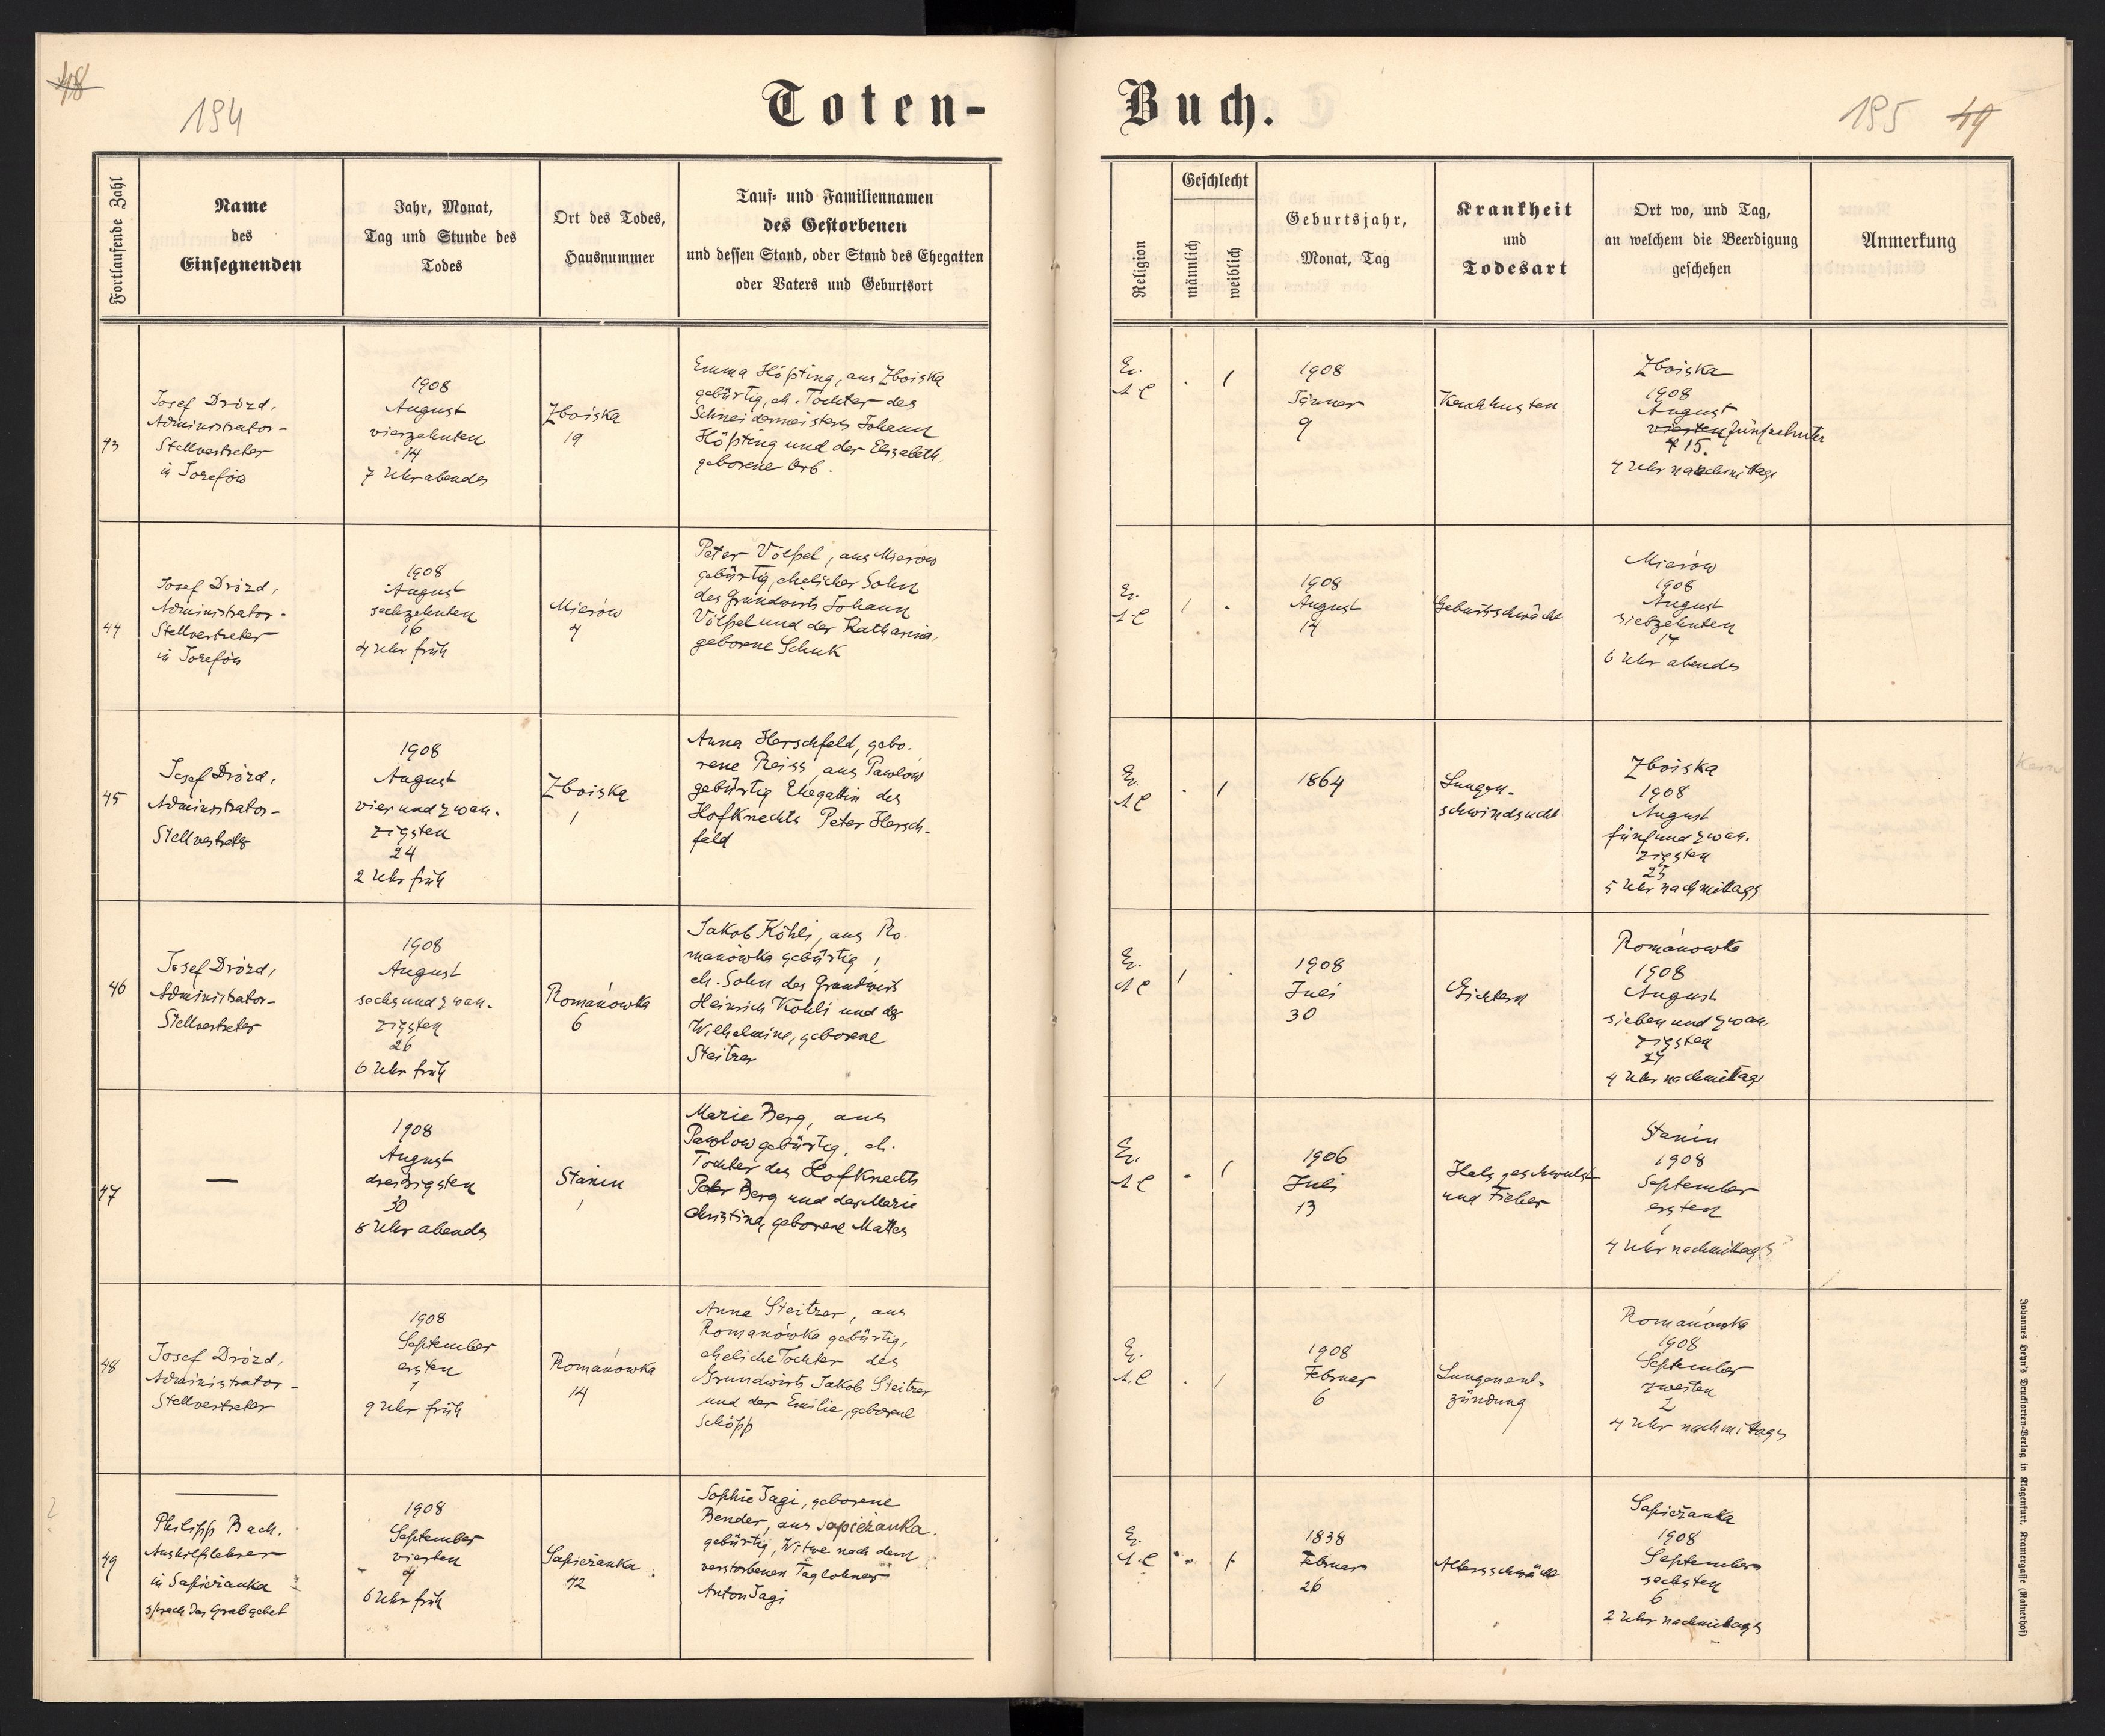 48
194
Toten-
Buch.
195 49
Fortlaufende Zahl
Name
des
Einsegnenden
Jahr, Monat,
Tag und Stunde des
Todes
Ort des Todes,
Hausnummer
Tauf- und Familiennamen
des Gestorbenen
und dessen Stand, oder Stand des Ehegatten
oder Vaters und Geburtsort
Religion
Geschlecht
männlich
weiblich
Geburtsjahr,
Monat, Tag
Krankheit
und
Todesart
Ort wo, und Tag,
an welchem die Beerdigung
geschehen
Anmerkung
43
Josef Drózd,
Administrator-
Stellvertreter
in Josefów
1908
August
vierzehnten
14
7 Uhr abends
Zboiska
19
Emma Höpting, aus Zboiska
gebürtig, eh. Tochter des
Schneidermeisters Johann
Höpting und der Elisabeth,
geborene Orb.
Ev.
A.C
. /
1908
Jänner
9
Keuchhusten
Zboiska
1908
August
vierten fünfzehnten
4 15.
4 Uhr nachmittags
44
Josef Drózd,
Administrator-
Stellvertreter
in Josefów
1908
August
sechzehnten
16
4 Uhr früh
Mierów
7
Peter Völpel, aus Mierow
gebürtig, ehelicher Sohn
des Grundwirts Johann
Völpel und der Katharina,
geborene Schuk
Ev.
A.C
/ .
1908
August
14
Geburtsschwäche
Mierów
1908
August
siebzehnten
17
6 Uhr abends
45
Josef Drózd,
Administrator-
Stellvertreter
1908
August
vierundzwan-
zigsten
24
2 Uhr früh
Zboiska
1
Anna Herschfeld, gebo-
rene Reiss, aus Pawlow
gebürtig Ehegattin des
Hofknechts Peter Hersch-
feld
Ev.
A.C
. /
1864
Lungen-
schwindsucht
Zboiska
1908
August
fünfundzwan-
zigsten
25
5 Uhr nachmittags
46
Josef Drózd,
Administrator-
Stellvertreter
1908
August
sechsundzwan-
zigsten
26
6 Uhr früh
Romanówka
6
Jakob Köhli, aus Ro-
manówka gebürtig,
eh. Sohn des Grundwirts
Heinrich Köhli und der
Wilhelmine, geborene
Steitzer
Ev.
A.C
/ .
1908
Juli
30
Gichtern
Romanowka
1908
August
siebenundzwan-
zigsten
27
4 Uhr nachmittags
47
—
1908
August
dreizigsten
30
8 Uhr abends
Stanin
1
Marie Berg, aus
Pawlow gebürtig, eh.
Tochter des Hofknechts
Peter Berg und der Marie
Christina, geborene Mattes
Ev.
A.C
. /
1906
Juli
13
Halsgeschwulst
und Fieber
Stanin
1908
September
ersten
1
4 Uhr nachmittags
48
Josef Drózd,
Administrator-
Stellvertreter
1908
September
ersten
1
9 Uhr früh
Romanówka
14
Anna Steitzer, aus
Romanówka gebürtig,
eheliche Tochter des
Grundwirts Jakob Steitzer
und der Emilie, geborene
Schöpp
Ev.
A.C
. /
1908
Februar
6
Lungenent-
zündung
Romanówka
1908
September
zweiten
2
4 Uhr nachmittags
49
Philipp Bach.
Aushilfslehrer
in Sapieżanka
sprach das Grabgebet
1908
September
vierten
4
6 Uhr früh
Sapieżanka
42
Sophie Jagi, geborene
Bender, aus Sapieżanka.
gebürtig, Witwe nach dem
verstorbenen Taglöhner
Anton Jagi
Ev.
A.C
. /
1838
Februar
26
Altersschwäche
Sapieżanka
1908
September
sechsten
6
2 Uhr nachmittags
Johannes Heyn's Drucksorten-Verlag in Klagenfurt, Kramergasse (Rainerhof)